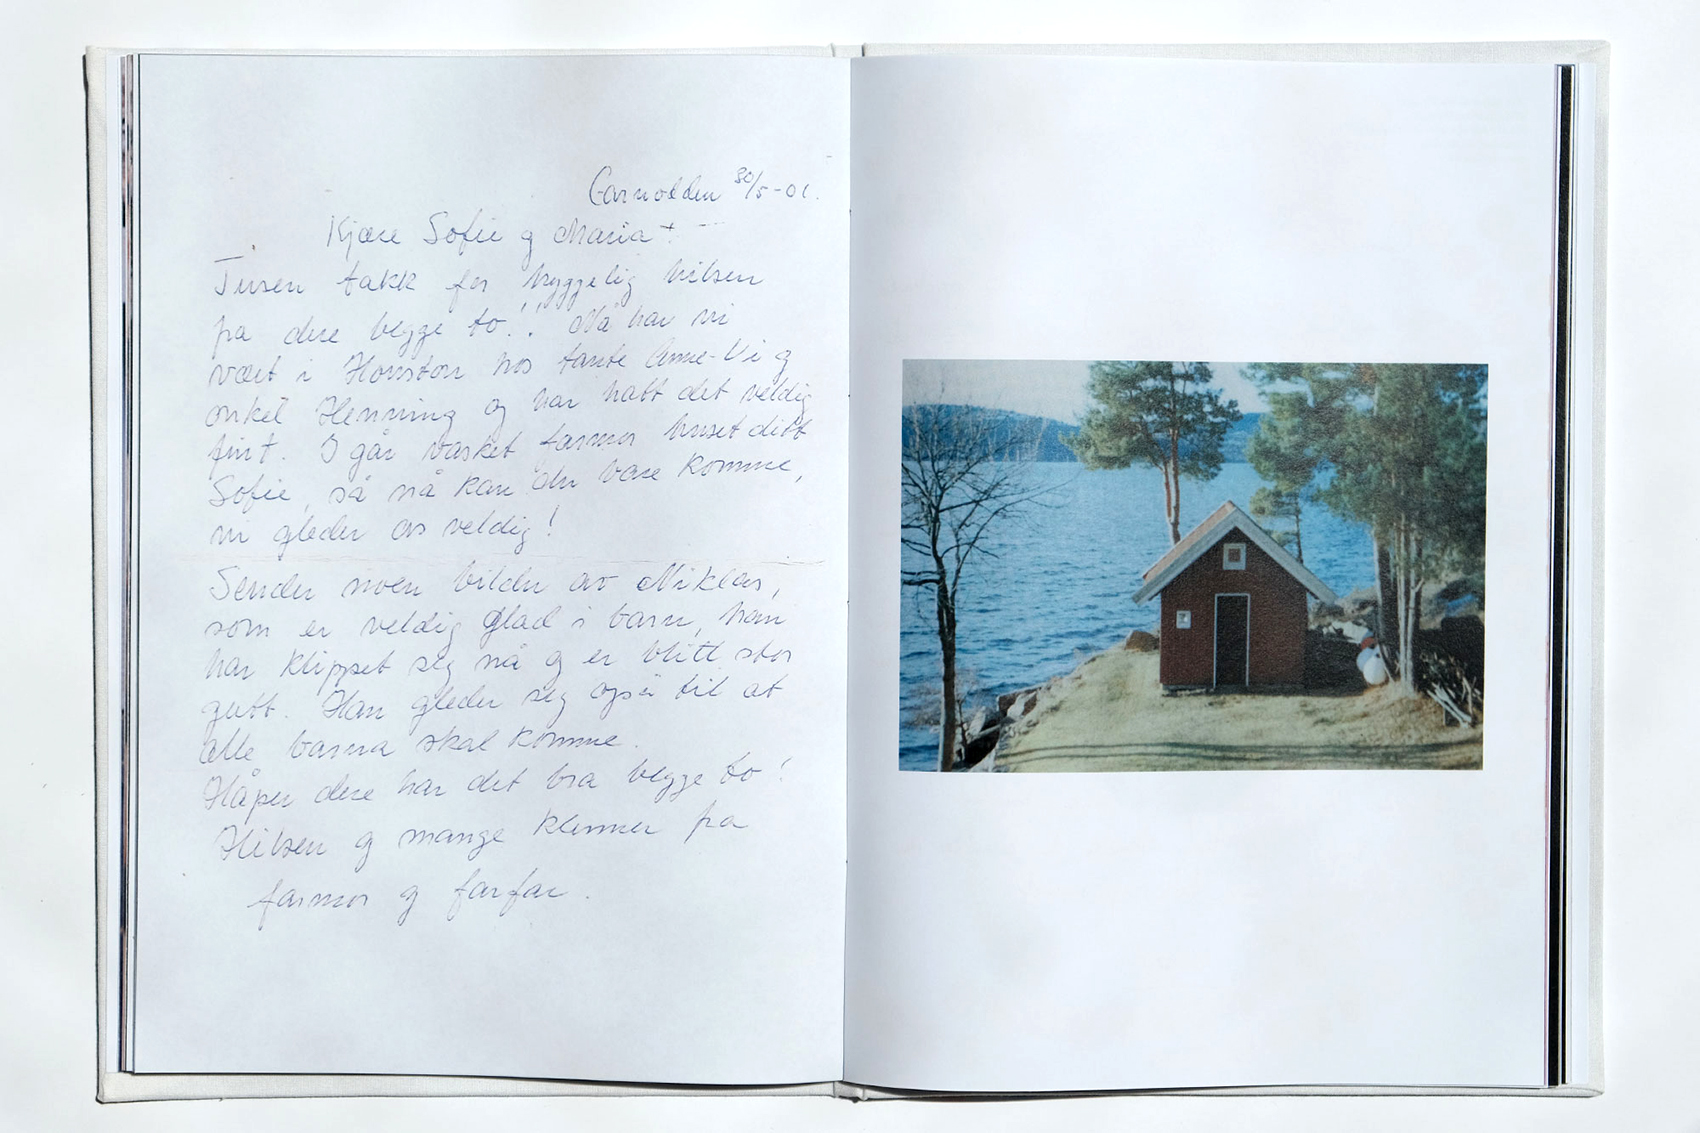 Garnolden 30/5-01.
Kjære Sofie og Maria!
Tusen takk for hyggelig hilsen
fra dere begge to!! Nå har vi
vært i Houston hos tante Anne-Vi og
onkel Henning og har hatt det veldig
fint. I går vasket farmor huset ditt
Sofie, så nå kan du bare komme,
vi gleder os veldig!
Sender noen bilder av Niklas,
som er veldig glad i barn, han
har klippet seg nå og er blitt stor
gutt. Han gleder seg også til at
alle barna skal komme.
Håper dere har det bra begge to!
Hilsen og mange klemmer fra
farmor og farfar.